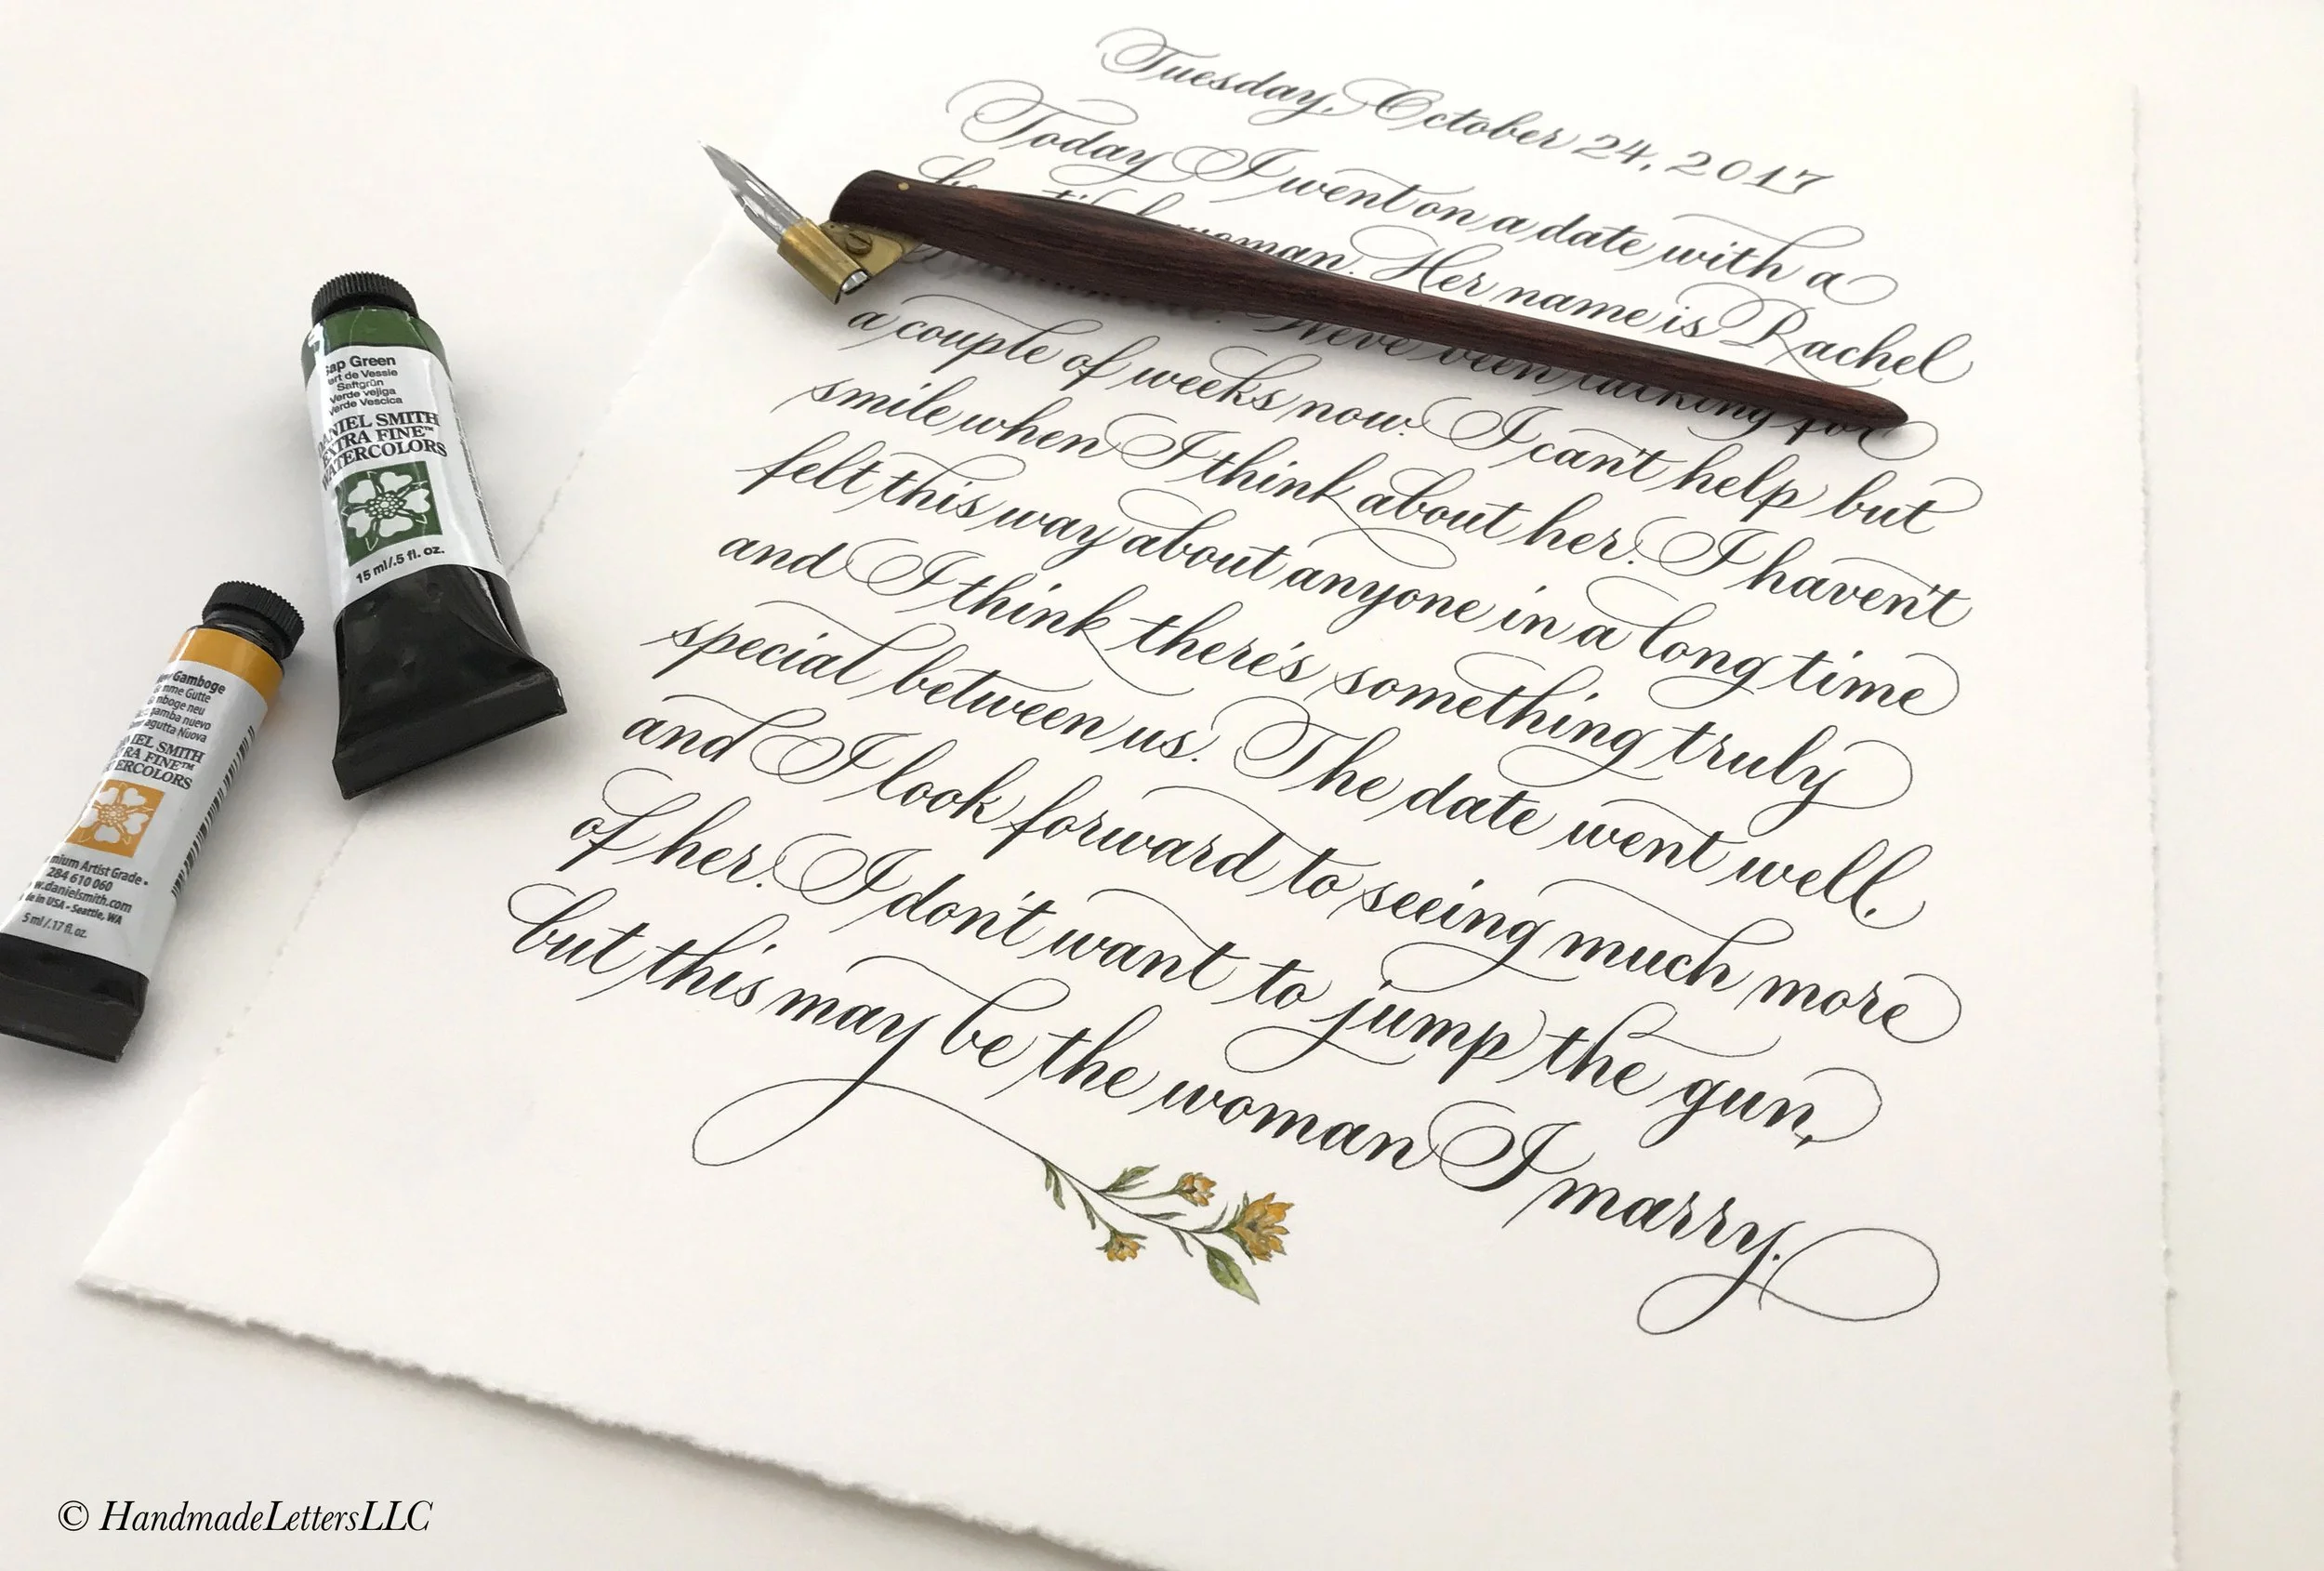 Tuesday, October 24, 2017
Today I went on a date with a
woman. Her name is Rachel
We've been talking for
a couple of weeks now. I can't help but
smile when I think about her. I haven't
felt this way about anyone in a long time
and I think there's something truly
special between us. The date went well,
and I look forward to seeing much more
of her. I don't want to jump the gun,
but this may be the woman I marry.
Sap Green
Vert de Vessie
Saftgrün
Verde vejiga
Verde Vescica
DANIEL SMITH
EXTRA FINE™
WATERCOLORS
15 ml/.5 fl. oz.
Gamboge
Gomme Gutte
Gamboge neu
gamba nuevo
Gommagutta Nuova
DANIEL SMITH
EXTRA FINE™
WATERCOLORS
Premium Artist Grade •
284 610 060
www.danielsmith.com
Made in USA • Seattle, WA
5 ml/.17 fl. oz.
© HandmadeLettersLLC